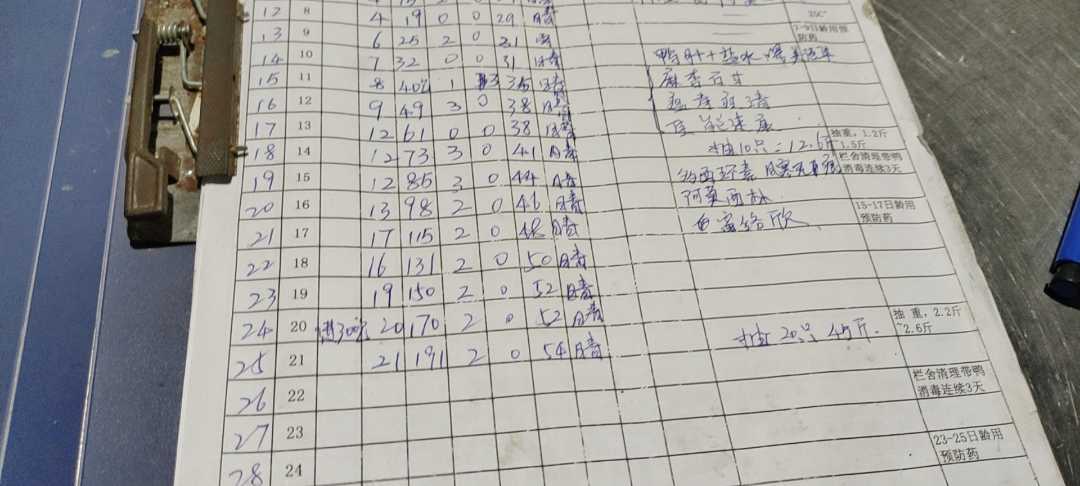 12 8 4 19 0 0 29 晴 20C°
13 9 6 25 2 0 31 晴 7-9日龄用预防药
14 10 7 32 0 0 31 晴 鸭肝 + 盐水
15 11 8 40 1 35 晴 麻杏石甘
16 12 9 49 3 0 38 晴
17 13 12 61 0 0 38 晴
18 14 12 73 3 0 41 晴 抽10只=12.6斤 抽重，1.2斤 1.5斤
19 15 12 85 3 0 44 晴 多西环素 栏舍清理带鸭消毒连续3天
20 16 13 98 2 0 46 晴 阿莫西林
21 17 17 115 2 0 48 晴 15-17日龄用预防药
22 18 16 131 2 0 50 晴
23 19 19 150 2 0 52 晴
24 20 进300 20 170 2 0 52 晴 抽重，2.2斤~2.6斤
25 21 21 191 2 0 54 晴 抽20只 45斤.
26 22 栏舍清理带鸭消毒连续3天
27 23
28 24 23-25日龄用预防药